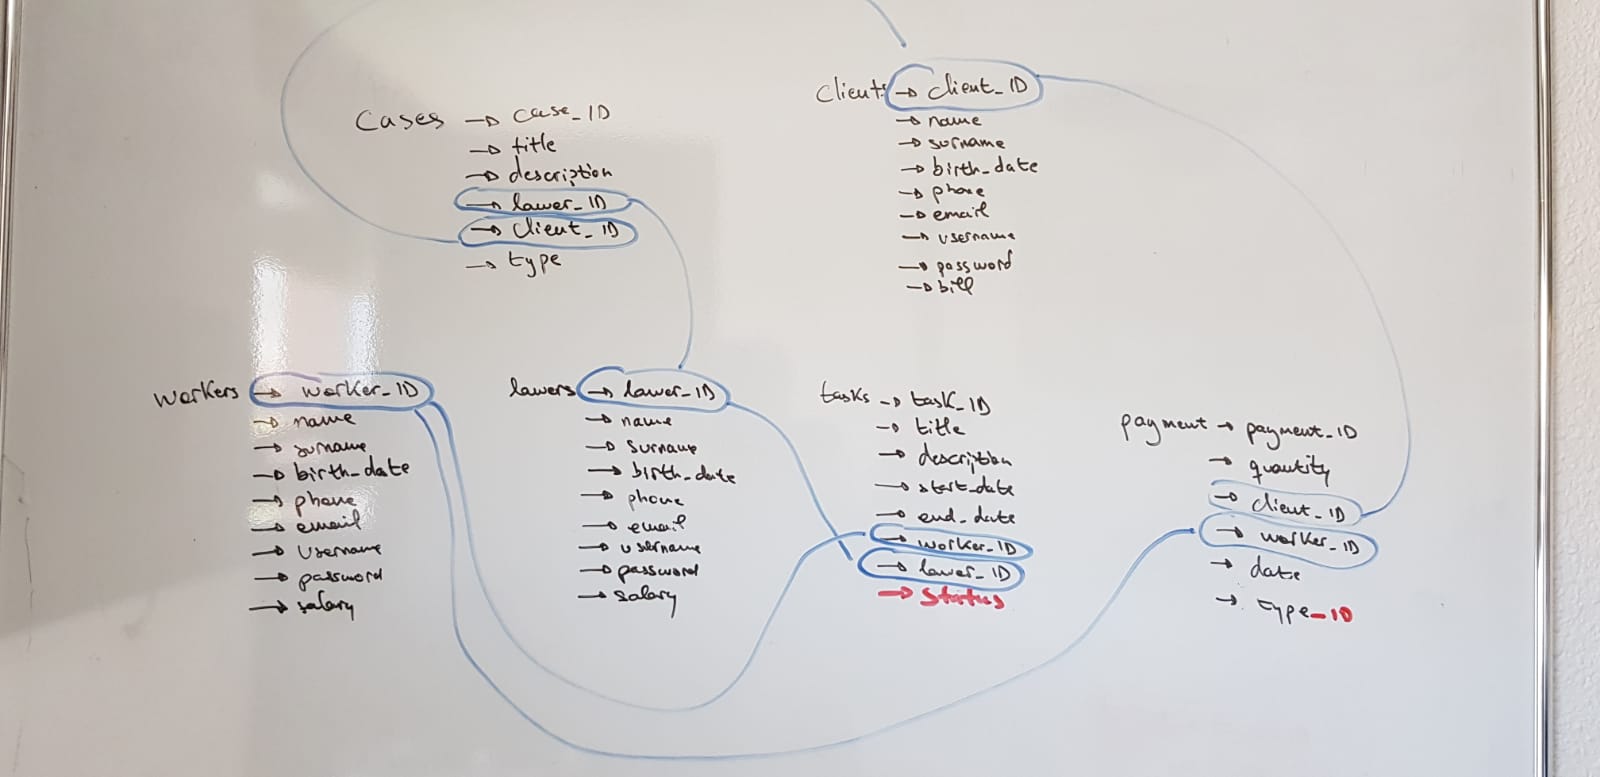 Cases → case_ID
→ title
→ description
→ lawer_ID
→ client_ID
→ type
Clients → client_ID
→ name
→ surname
→ birth_date
→ phone
→ email
→ username
→ password
→ bill
workers → worker_ID
→ name
→ surname
→ birth_date
→ phone
→ email
→ username
→ password
→ salary
lawers → lawer_ID
→ name
→ surname
→ birth_date
→ phone
→ email
→ username
→ password
→ salary
tasks → task_ID
→ title
→ description
→ start_date
→ end_date
→ worker_ID
→ lawer_ID
→ status
payment → payment_ID
→ quantity
→ client_ID
→ worker_ID
→ date
→ type_ID